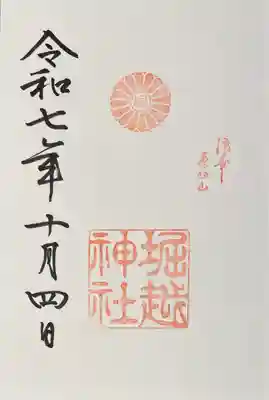 堀越
神社
令和七年十月四日